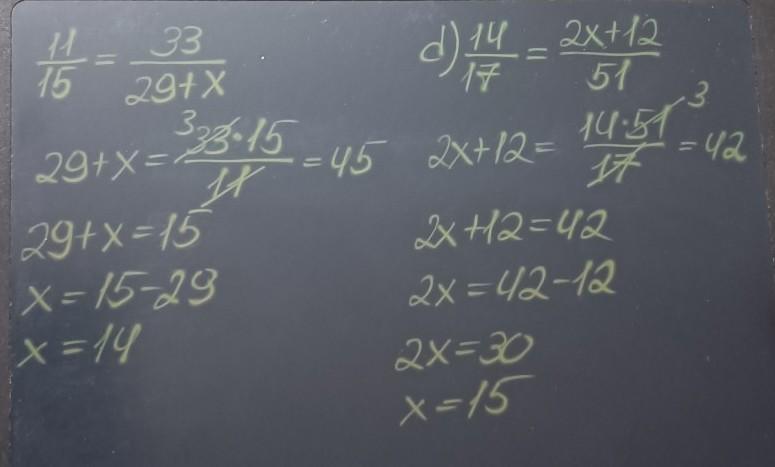 11/15 = 33/(29+x)
29+x = (33·15)/11 = 45
3
29+x=15
x=15-29
x=14
d) 14/17 = (2x+12)/51
2x+12 = (14·51)/17 = 42
3
2x+12=42
2x=42-12
2x=30
x=15